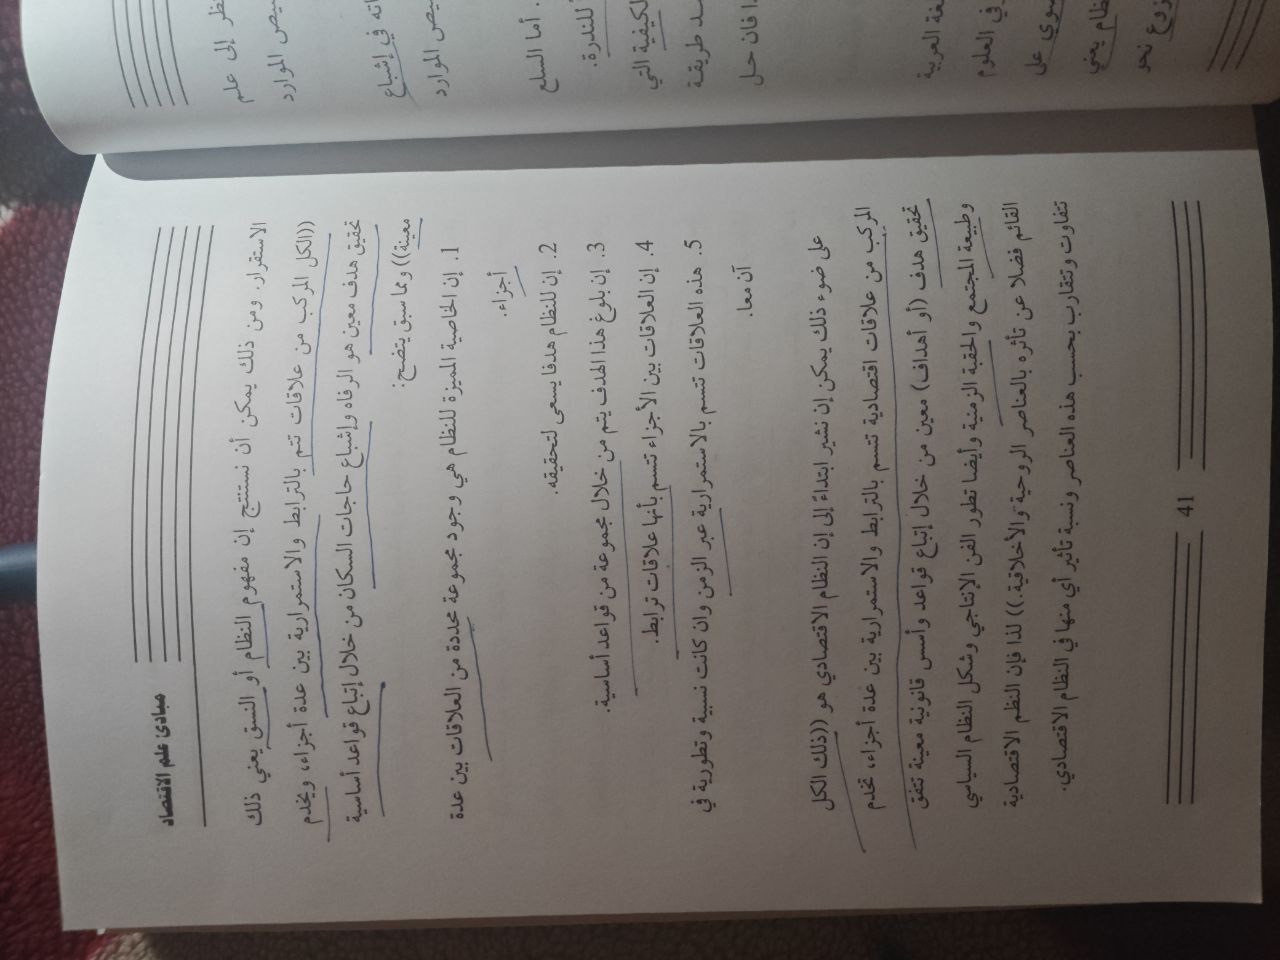 نظر إلى علم
صيص الموارد
اته في إشباع
صيص الموارد
. أما السلع
للندرة.
لكيفية التي
سد طريقة
ا فان حل
غة العربية
في العلوم
ضوي على
ظام يعني
زوع نحو
مبادئ علم الاقتصاد
الاستقرار. ومن ذلك يمكن أن نستنتج إن مفهوم النظام أو النسق يعني ذلك
((الكل المركب من علاقات تتم بالترابط والاستمرارية بين عدة أجزاء، ويخدم
تحقيق هدف معين هو الرفاه وإشباع حاجات السكان من خلال إتباع قواعد أساسية
معينة)) ومما سبق يتضح:
1. إن الخاصية المميزة للنظام هي وجود مجموعة محددة من العلاقات بين عدة
أجزاء.
2. إن للنظام هدفا يسعى لتحقيقه.
3. إن بلوغ هذا الهدف يتم من خلال مجموعة من قواعد أساسية.
4. إن العلاقات بين الأجزاء تتسم بأنها علاقات ترابط.
5. هذه العلاقات تتسم بالاستمرارية عبر الزمن وان كانت نسبية وتطورية في
آن معا.
على ضوء ذلك يمكن إن نشير ابتداءً إلى إن النظام الاقتصادي هو ((ذلك الكل
المركب من علاقات اقتصادية تتسم بالترابط والاستمرارية بين عدة أجزاء، تخدم
تحقيق هدف (أو أهداف) معين من خلال إتباع قواعد وأسس قانونية معينة تتفق
وطبيعة المجتمع والحقبة الزمنية وأيضا تطور الفن الإنتاجي وشكل النظام السياسي
القائم فضلا عن تأثره بالعناصر الروحية والأخلاقية.)) لذا فإن النظم الاقتصادية
تتفاوت وتتقارب بحسب هذه العناصر ونسبة تأثير أي منها في النظام الاقتصادي.
41